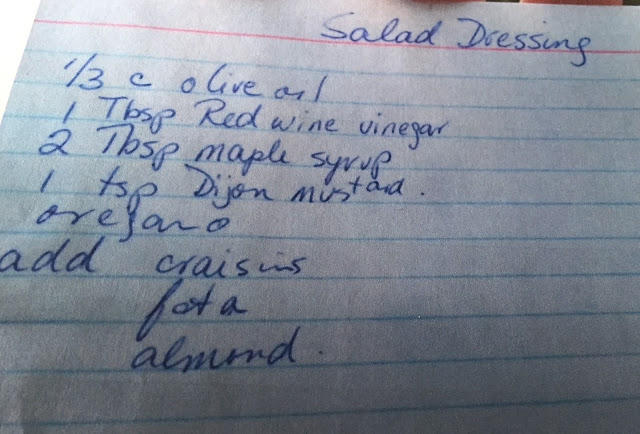 Salad Dressing
1/3 c olive oil
1 Tbsp Red wine vinegar
2 Tbsp maple syrup
1 tsp Dijon mustard.
oregano
add craisins
feta
almond.